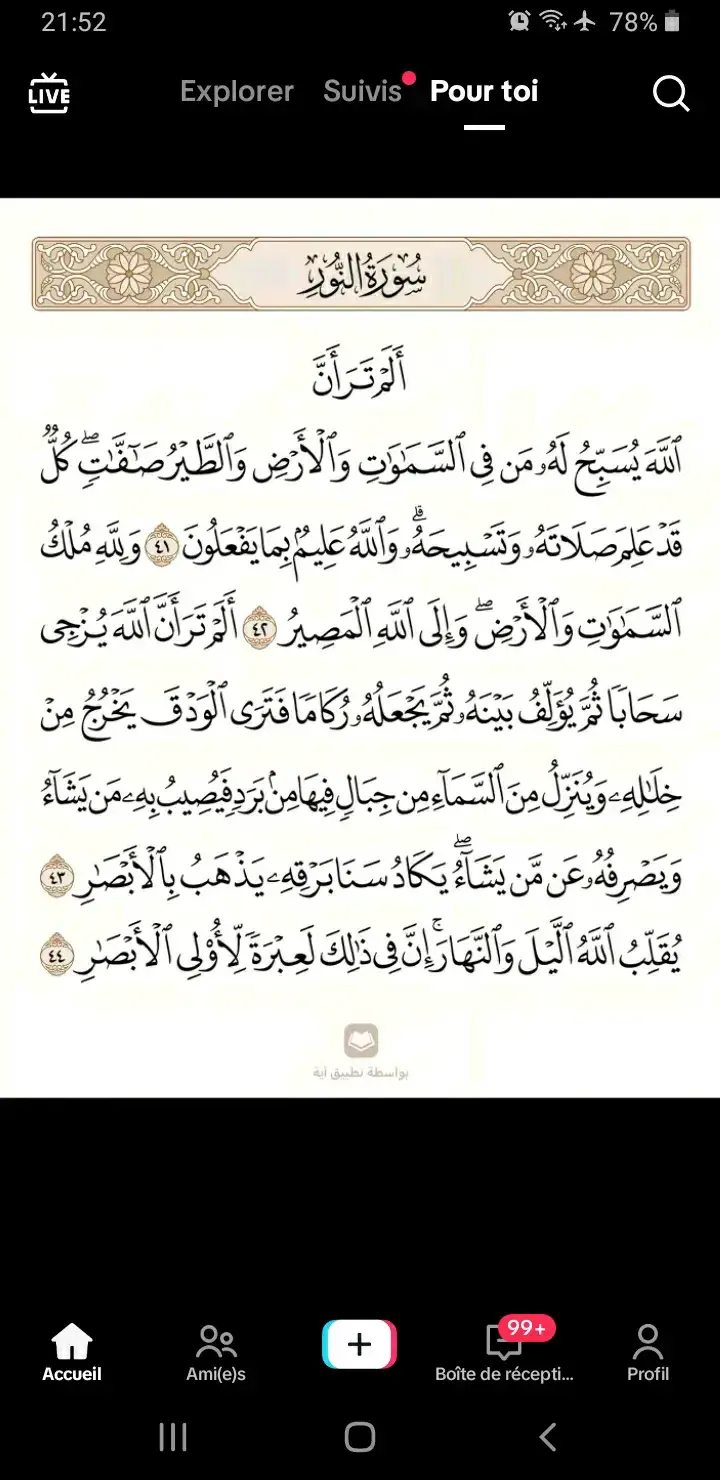 21:52
78%
LIVE
Explorer Suivis Pour toi
سُورَةُ النُّورِ
أَلَمْ تَرَ أَنَّ
ٱللَّهَ يُسَبِّحُ لَهُۥ مَن فِى ٱلسَّمَٰوَٰتِ وَٱلْأَرْضِ وَٱلطَّيْرُ صَٰٓفَّٰتٍۢ ۖ كُلٌّۭ
قَدْ عَلِمَ صَلَاتَهُۥ وَتَسْبِيحَهُۥ ۗ وَٱللَّهُ عَلِيمٌۢ بِمَا يَفْعَلُونَ ٤١ وَلِلَّهِ مُلْكُ
ٱلسَّمَٰوَٰتِ وَٱلْأَرْضِ ۖ وَإِلَى ٱللَّهِ ٱلْمَصِيرُ ٤٢ أَلَمْ تَرَ أَنَّ ٱللَّهَ يُزْجِى
سَحَابًۭا ثُمَّ يُؤَلِّفُ بَيْنَهُۥ ثُمَّ يَجْعَلُهُۥ رُكَامًۭا فَتَرَى ٱلْوَدْقَ يَخْرُجُ مِنْ
خِلَٰلِهِۦ وَيُنَزِّلُ مِنَ ٱلسَّمَآءِ مِن جِبَالٍۢ فِيهَا مِنۢ بَرَدٍۢ فَيُصِيبُ بِهِۦ مَن يَشَآءُ
وَيَصْرِفُهُۥ عَن مَّن يَشَآءُ ۖ يَكَادُ سَنَا بَرْقِهِۦ يَذْهَبُ بِٱلْأَبْصَٰرِ ٤٣
يُقَلِّبُ ٱللَّهُ ٱلَّيْلَ وَٱلنَّهَارَ ۚ إِنَّ فِى ذَٰلِكَ لَعِبْرَةًۭ لِّأُو۟لِى ٱلْأَبْصَٰرِ ٤٤
بواسطة تطبيق آية
99+
Accueil Ami(e)s Boîte de récepti... Profil